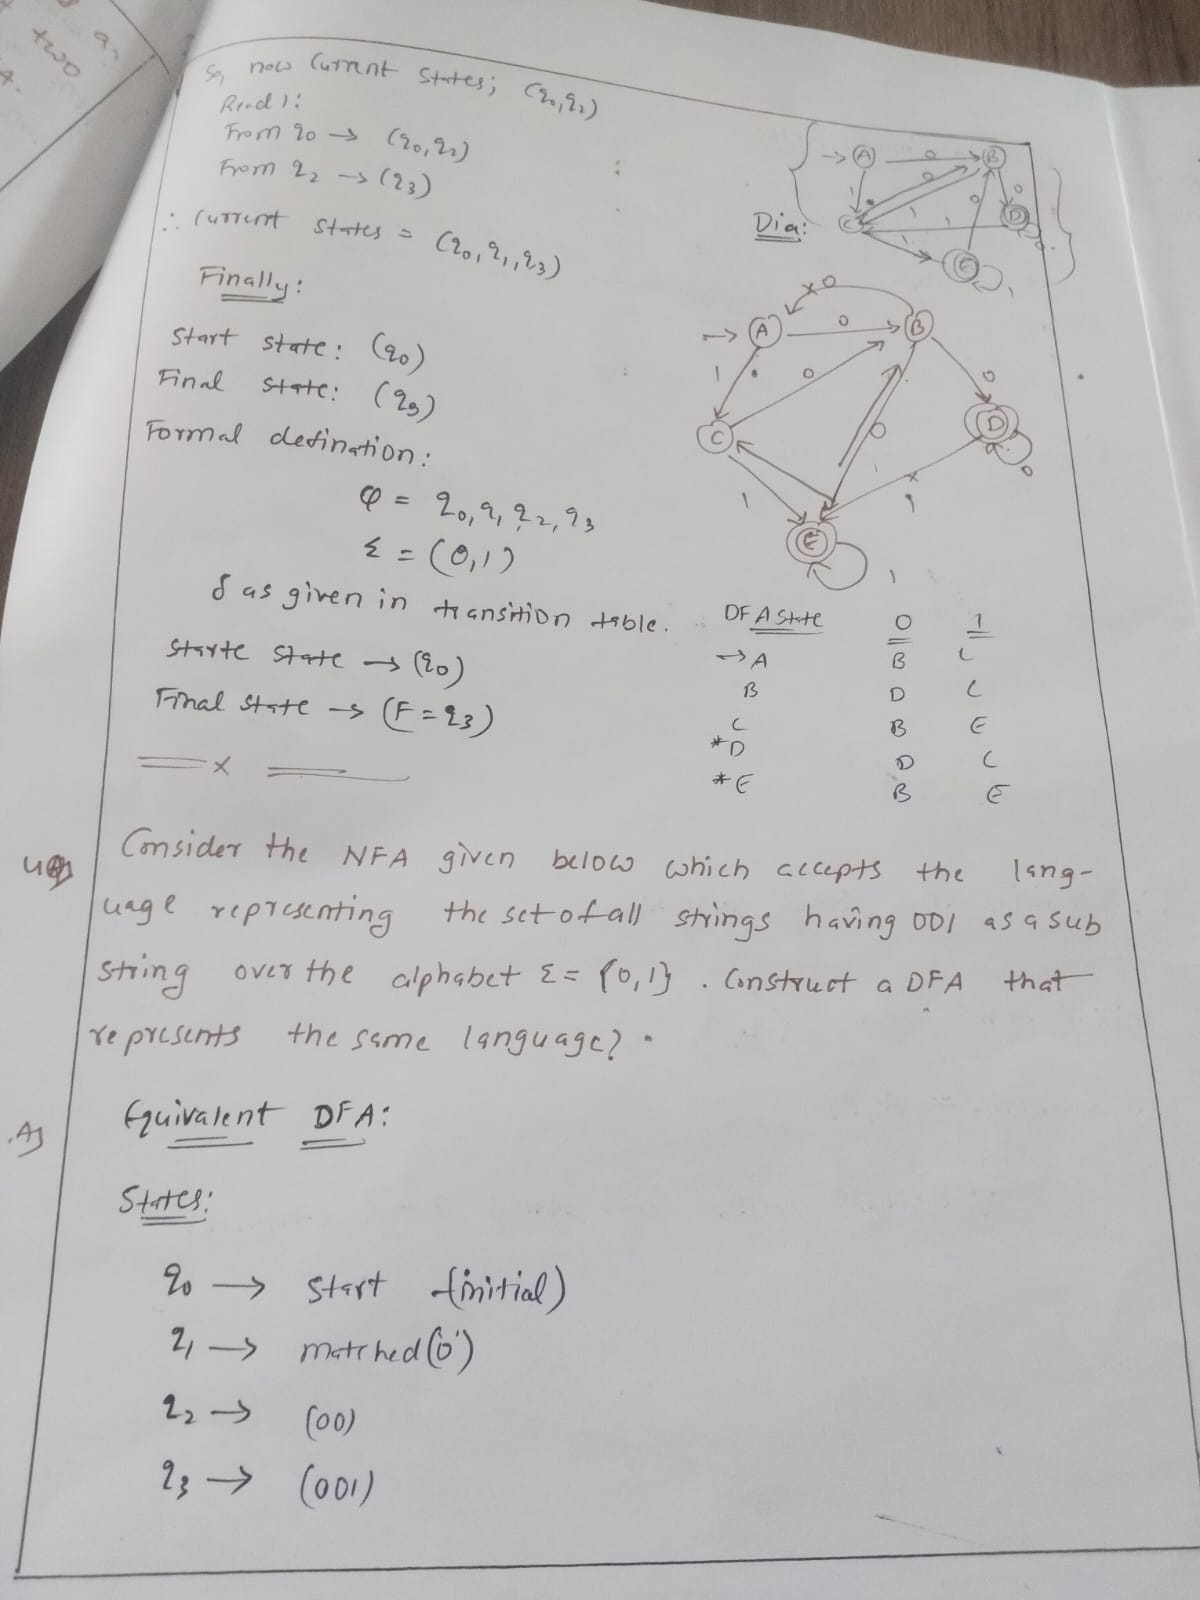 a.
two
So, now Current States; (q0,q2)
Read 1:
From q0 → (q0,q2)
From q2 → (q3)
∴ Current states = (q0,q1,q3)
Finally:
Start state: (q0)
Final state: (q3)
Formal defination:
Q = q0,q1,q2,q3
Σ = (0,1)
δ as given in transition table.
Starte state → (q0)
Final state → (F = q3)
x
Dia:
A 0 B
1 0 0 0
C 1 1 D
1 E 0
1
x 0
A 0 B
1 0 0
C 0 D
1 1 x 0
E 1
1
DFA State 0 1
→A B C
B D C
C B E
*D D C
*E B E
4Q) Consider the NFA given below which accepts the lang-
uage representing the set of all strings having 001 as a sub
string over the alphabet Σ = {0,1}. Construct a DFA that
represents the same language?
A) Equivalent DFA:
States:
q0 → start (initial)
q1 → matched (0)
q2 → (00)
q3 → (001)